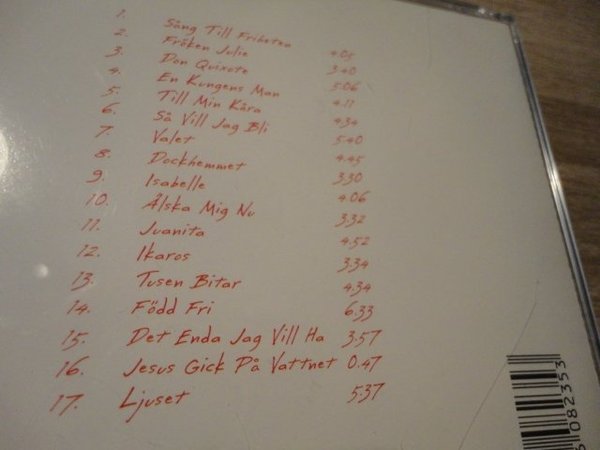 1. Sång Till Friheten 4.05
2. Fröken Julie 3.40
3. Don Quixote 5:06
4. En Kungens Man 4.17
5. Till Min Kära 4:34
6. Så Vill Jag Bli 5:40
7. Valet 4:45
8. Dockhemmet 3:30
9. Isabelle 4:06
10. Älska Mig Nu 3:32
11. Juanita 4:52
12. Ikaros 3:34
13. Tusen Bitar 4:34
14. Född Fri 6:33
15. Det Enda Jag Vill Ha 3:57
16. Jesus Gick På Vattnet 0:47
17. Ljuset 5:37
082353